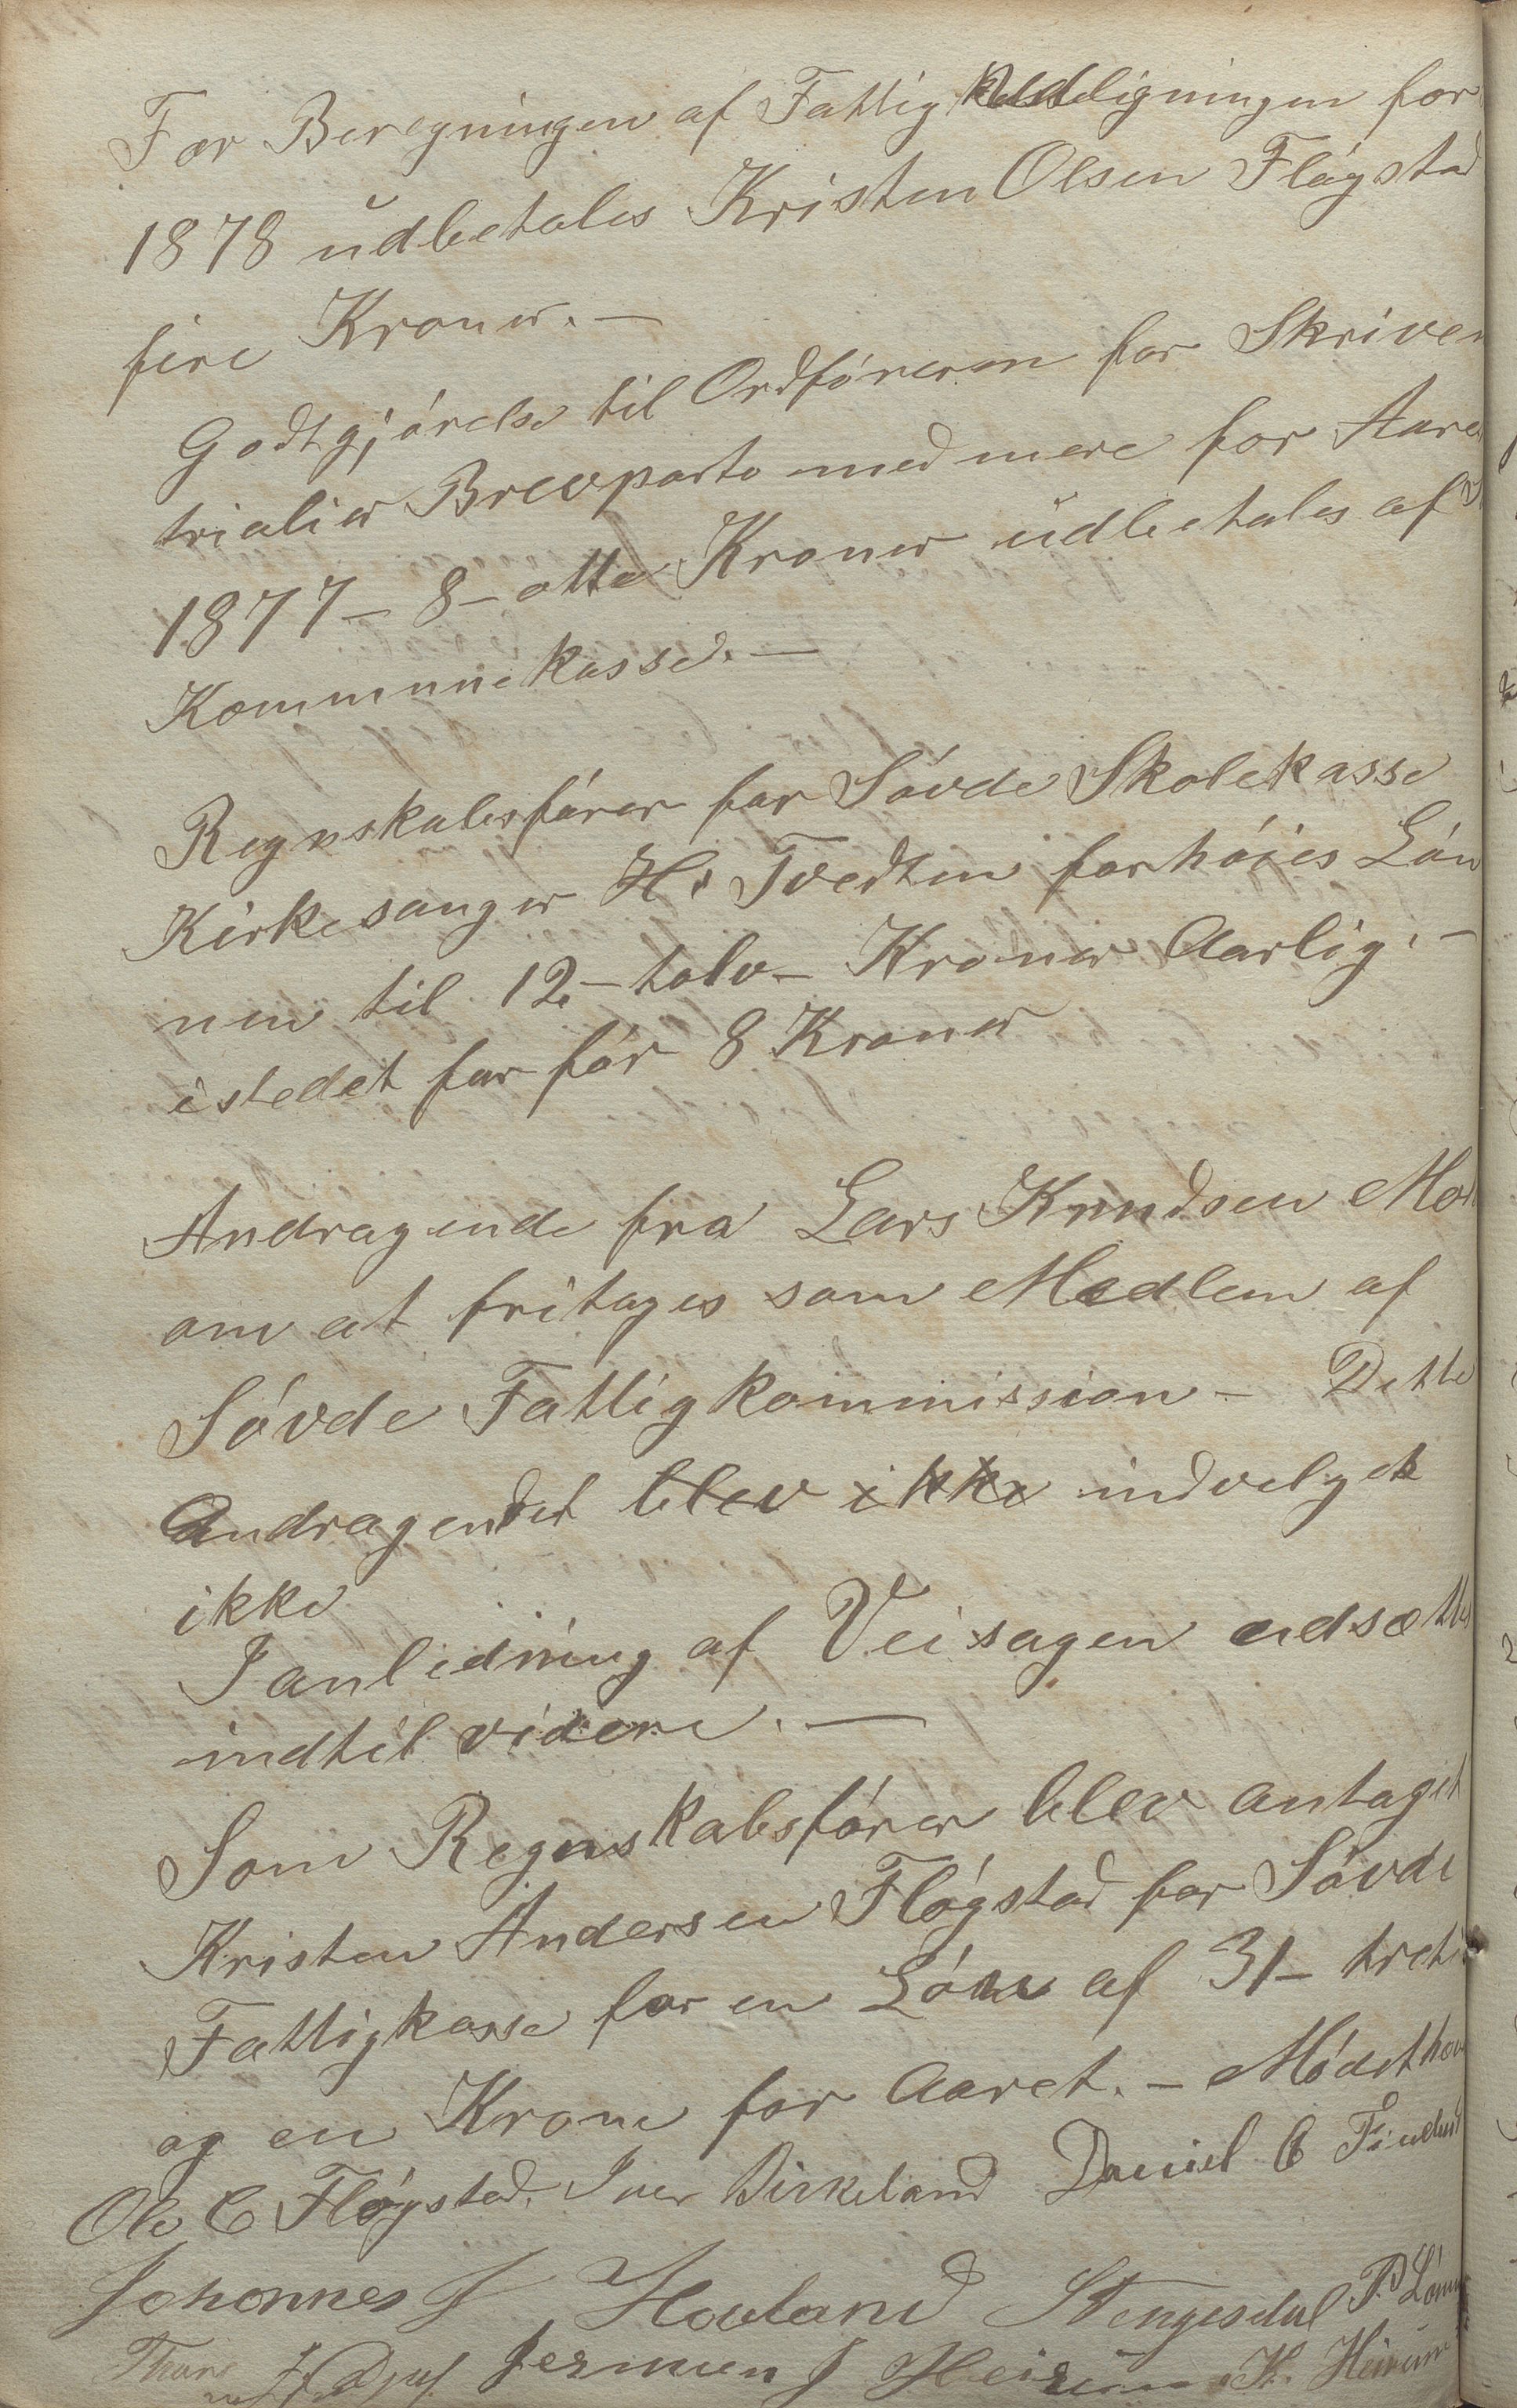 For Beregningen af Fattigudligningen for
1878 udbetales Kristen Olsen Fløgstad
fire Kroner. —
Godtgjórelse til Ordfóreren for Skriven
trialier Brevporto med mere for Aaret
1877 – 8 – otte Kroner udbetales af
Kommunekassed. —
Regnskabsfórer for Sóvde Skolekasse
Kirkesanger H. Tvedten forhóies Lón
nen til 12 – tolv – Kroner Aarlig. –
istedet for fór 8 Kroner
Andragende fra Lars Knudsen Mo
om at fritages som Medlem af
Sóvde Fattigkommission – Dette
Andragendet blev ikke indvelgek
ikke
I anledning af Veisagen udsættes
indtil videre. —
Som Regnskabsfórer blev antaget
Kristen Andersen Flógstad for Sóvde
Fattigkasse for en Lón af 31 – treti
og en Krone for Aaret. – Módet hæv
Ole C Flógstad. Iver Birkeland Daniel C
Johannes J Hovland Stengesdal P.
J Heirum K. Heirum